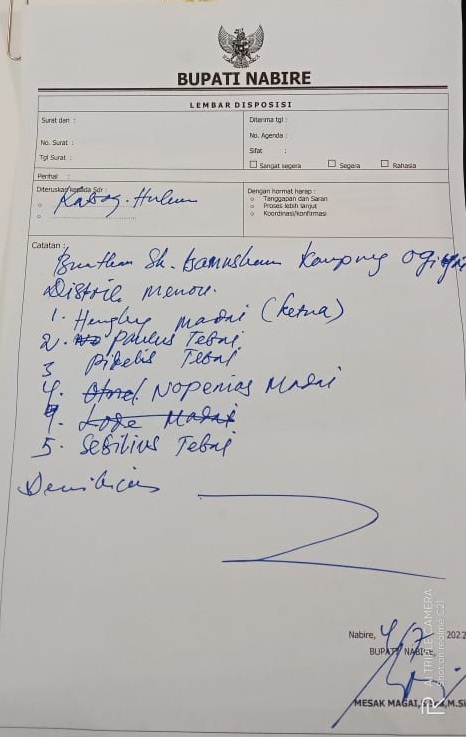 BUPATI NABIRE
LEMBAR DISPOSISI
Surat dari :
Diterima tgl :
No. Surat :
No. Agenda :
Tgl Surat :
Sifat :
Sangat segera Segera Rahasia
Perihal :
Diteruskan kepada Sdr :
Kabag. Hukum
Dengan hormat harap :
Tanggapan dan Saran
Proses lebih lanjut
Koordinasi/konfirmasi
Catatan :
Buatkan Sk. bamuskam Kampung
Distrik Menou.
1. Madai (ketua)
2. Paulus Tebai
3 Tebai
4. Nopenias Madai
4. Lode Madai
5. Sebilius Tebai
Demikian
Nabire, 4/7 2022
BUPATI NABIRE,
MESAK MAGAI, M.Si
AI TRIPLE CAMERA
Shot on realme C21